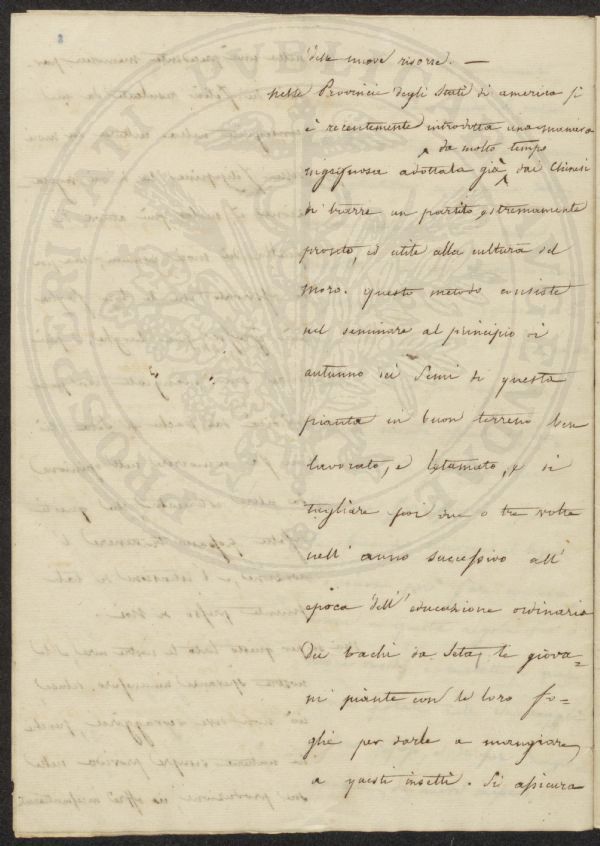 delle nuove risorse. —
Nelle Provincie degli Stati di america si
è recentemente introdotta una maniera
da molto tempo
ingegnosa adottata già dai Chinesi
di trarre un partito estremamente
pronto, ed utile alla cultura del
moro. Questo metodo consiste
nel seminare al principio di
autunno dei Semi di questa
pianta in buon terreno ben
lavorato, e letamato, e di
tagliare poi due o tre volte
nell' anno successivo all'
epoca dell' educazione ordinaria
Dei bachi da Seta, le giova-
ni piante con le loro fo-
glie per darle a mangiare
a questi insetti. Si assicura